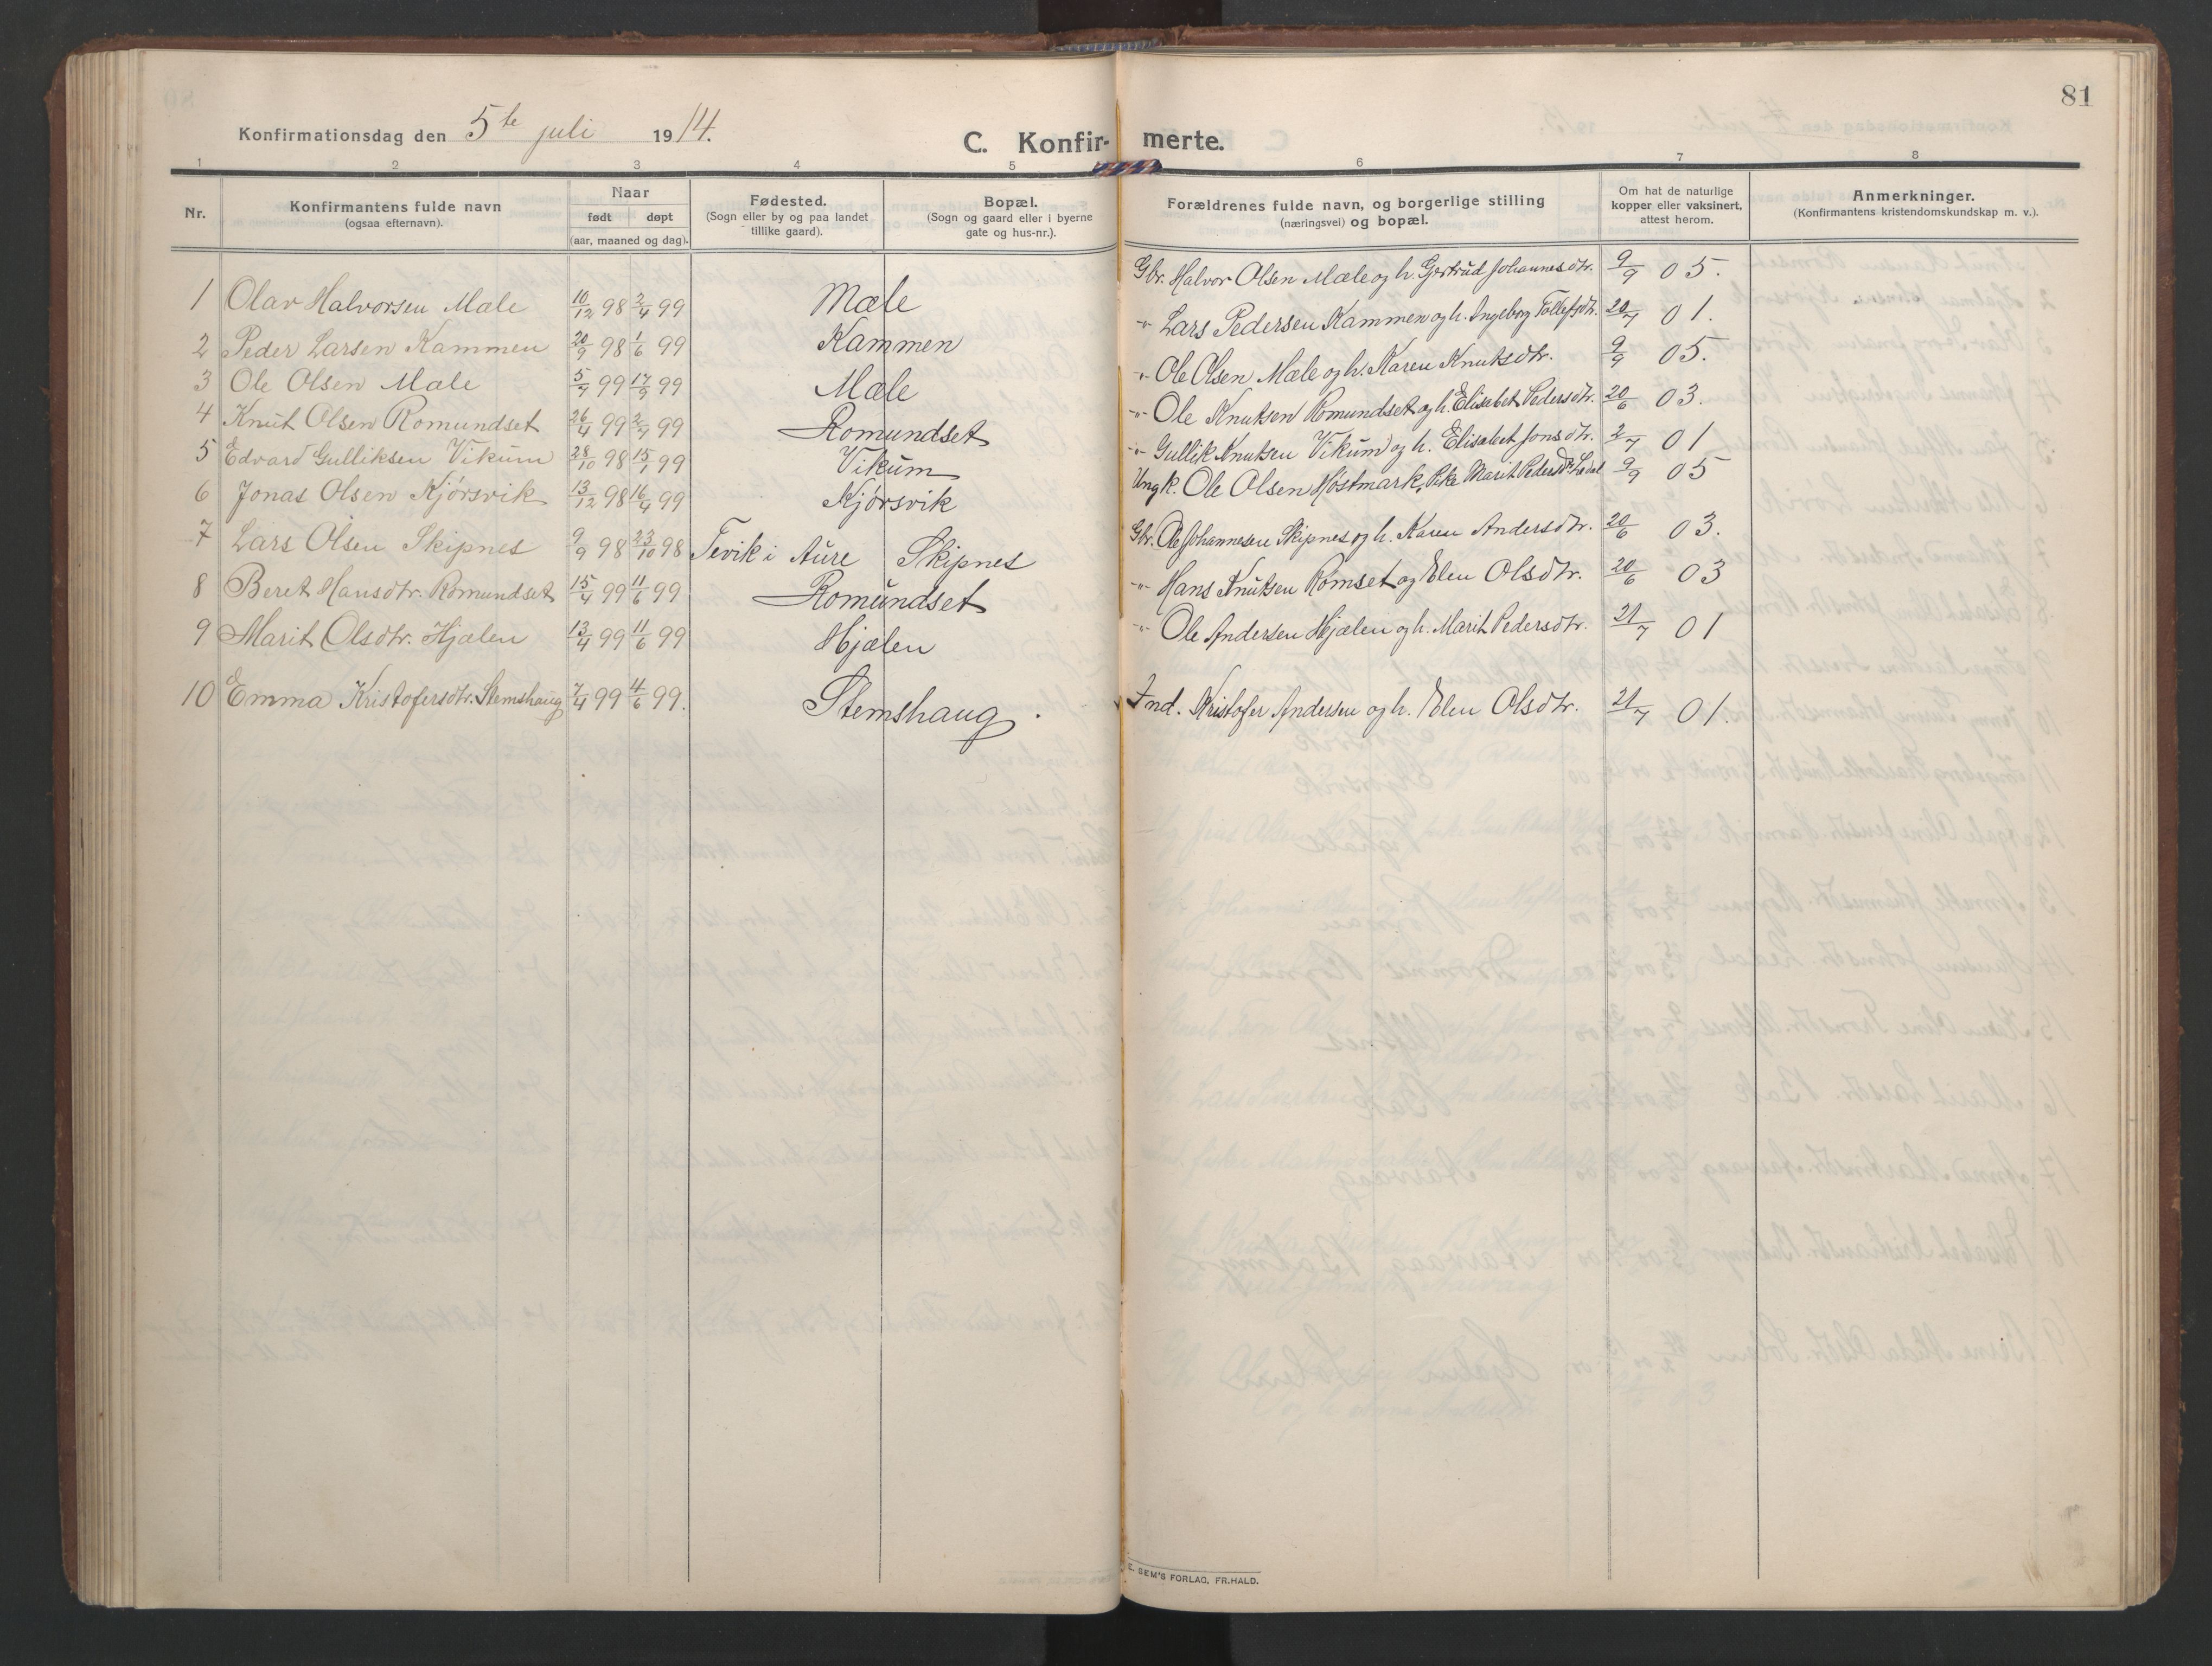 81
Konfirmationsdag den 5te juli 1914.
C. Konfir- merte.
1 2 3 4 5 6 7 8
Nr.
Konfirmantens fulde navn
(ogsaa efternavn).
Naar
født døpt
(aar, maaned og dag).
Fødested.
(Sogn eller by og paa landet
tillike gaard).
Bopæl.
(Sogn og gaard eller i byerne
gate og hus-nr.).
Forældrenes fulde navn, og borgerlige stilling
(næringsvei) og bopæl.
Om hat de naturlige
kopper eller vaksinert,
attest herom.
Anmerkninger.
(Konfirmantens kristendomskundskap m. v.).
1 Olav Halvorsen Mæle 10/12 98 2/4 99 Mæle Gbr. Halvor Olsen Mæle og h. Gjertrud Johannesdtr. 9/9 05.
2 Peder Larsen Kammen 20/9 98 1/6 99 Kammen -"- Lars Pedersen Kammen og h. Ingeborg Tollefsdtr. 20/7 01.
3 Ole Olsen Mæle 5/7 99 17/9 99 Mæle -"- Ole Olsen Mæle og h. Karen Knutsdtr. 9/9 05.
4 Knut Olsen Romundset 26/4 99 2/7 99 Romundset -"- Ole Knutsen Romundset og h. Elisabet Pedersdtr. 20/6 03.
5 Edvard Gulliksen Vikum 28/10 98 15/1 99 Vikum -"- Gullik Knutsen Vikum og h. Elisabet Jonsdtr. 2/7 01
6 Jonas Olsen Kjørsvik 13/12 98 16/4 99 Kjørsvik Ungk. Ole Olsen Høstmark, Pike Marit Pedersdtr. 9/9 05
7 Lars Olsen Skipnes 9/9 98 23/10 98 Tevik i Aure Skipnes Gbr. Ole Johannesen Skipnes og h. Karen Andersdtr. 20/6 03.
8 Beret Hansdtr. Romundset 15/4 99 11/6 99 Romundset -"- Hans Knutsen Romset og Elen Olsdtr. 20/6 03
9 Marit Olsdtr. Hjælen 13/4 99 11/6 99 Hjælen -"- Ole Andersen Hjælen og h. Marit Pedersdtr. 21/7 01
10 Emma Kristofersdtr. Stemshaug 7/4 99 4/6 99. Stemshaug. Ind. Kristofer Andersen og h. Elen Olsdtr. 21/7 01.
E. SEM'S FORLAG, FR.HALD.